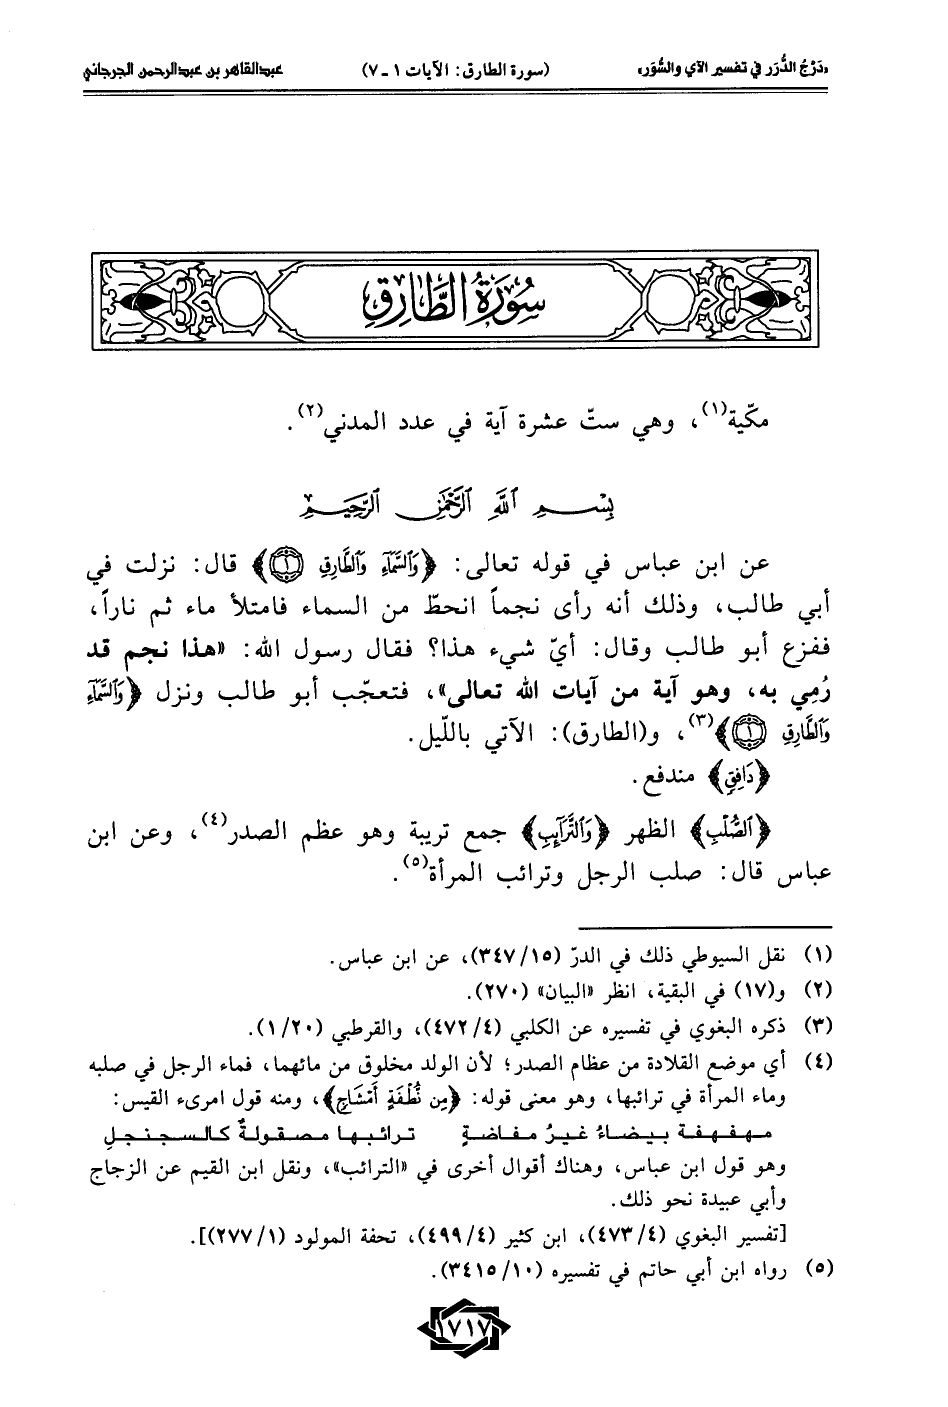 «دَرْجُ الدُّرَر في تفسير الآي والسُّوَر» (سورة الطارق: الآيات ١ ـ ٧) عبدالقاهر بن عبدالرحمن الجرجاني
سُورَةُ الطَّارِقِ
مكّية(١)، وهي ستّ عشرة آية في عدد المدني(٢).
بِسْمِ ٱللَّهِ ٱلرَّحْمَٰنِ ٱلرَّحِيمِ
عن ابن عباس في قوله تعالى: ﴿وَٱلسَّمَآءِ وَٱلطَّارِقِ ١﴾ قال: نزلت في
أبي طالب، وذلك أنه رأى نجماً انحطّ من السماء فامتلأ ماء ثم ناراً،
ففزع أبو طالب وقال: أيّ شيء هذا؟ فقال رسول الله: «هذا نجم قد
رُمِي به، وهو آية من آيات الله تعالى»، فتعجّب أبو طالب ونزل ﴿وَٱلسَّمَآءِ
وَٱلطَّارِقِ ١﴾(٣)، و(الطارق): الآتي باللّيل.
﴿دَافِقٍ﴾ مندفع.
﴿ٱلصُّلْبِ﴾ الظهر ﴿وَٱلتَّرَآئِبِ﴾ جمع تريبة وهو عظم الصدر(٤)، وعن ابن
عباس قال: صلب الرجل وترائب المرأة(٥).
(١) نقل السيوطي ذلك في الدرّ (٣٤٧/١٥)، عن ابن عباس.
(٢) و(١٧) في البقية، انظر «البيان» (٢٧٠).
(٣) ذكره البغوي في تفسيره عن الكلبي (٤٧٢/٤)، والقرطبي (١/٢٠).
(٤) أي موضع القلادة من عظام الصدر؛ لأن الولد مخلوق من مائهما، فماء الرجل في صلبه
وماء المرأة في ترائبها، وهو معنى قوله: ﴿مِن نُّطْفَةٍ أَمْشَاجٍ﴾، ومنه قول امرىء القيس:
مهفهفة بيضاءُ غيرُ مفاضةٍ ترائبها مصقولةٌ كالسجنجلِ
وهو قول ابن عباس، وهناك أقوال أخرى في «الترائب»، ونقل ابن القيم عن الزجاج
وأبي عبيدة نحو ذلك.
[تفسير البغوي (٤٧٣/٤)، ابن كثير (٤٩٩/٤)، تحفة المولود (٢٧٧/١)].
(٥) رواه ابن أبي حاتم في تفسيره (٣٤١٥/١٠).
١٧١٧